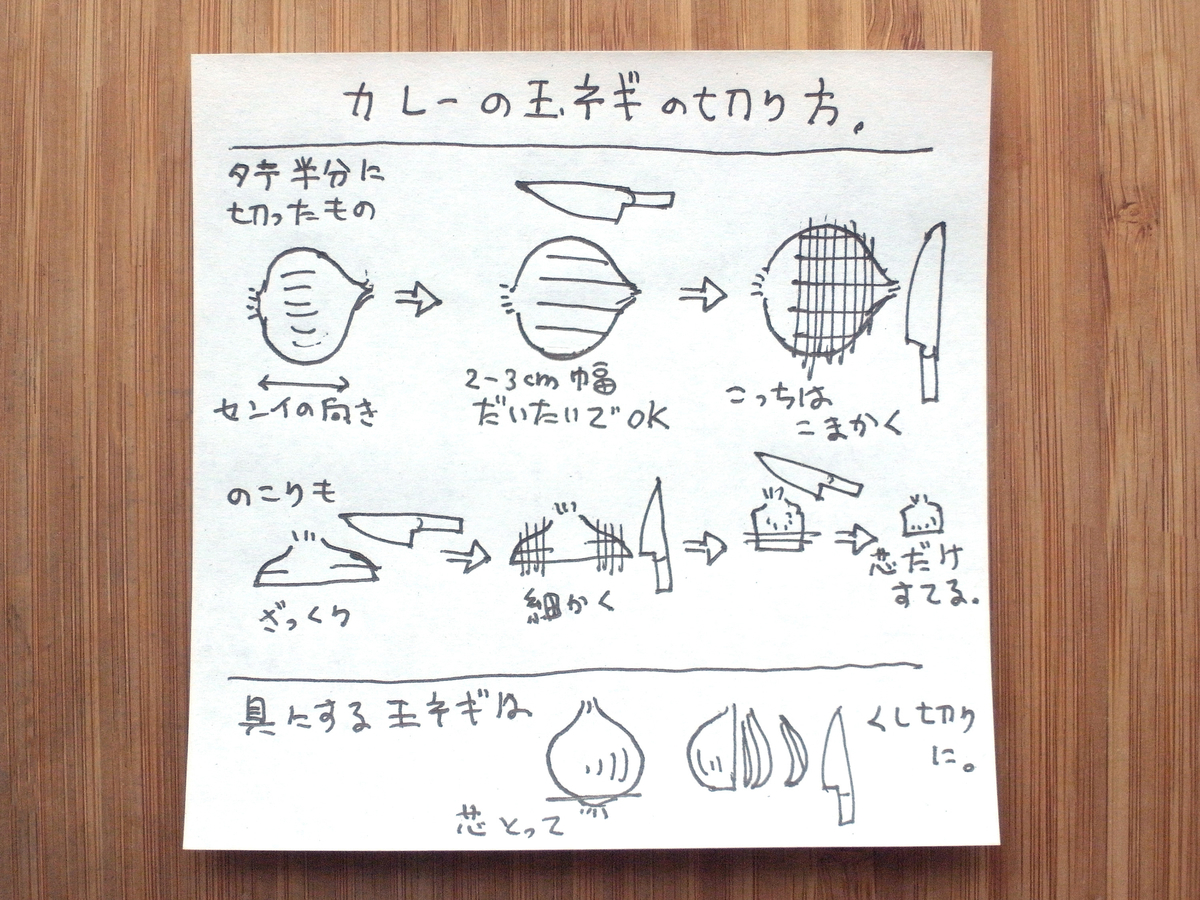 カレーの玉ネギの切り方。
タテ半分に
切ったもの
センイの向き
2-3cm幅
だいたいでOK
こっちは
こまかく
のこりも
ざっくり
細かく
芯だけ
すてる。
具にする玉ネギは
芯とって
くし切り
に。